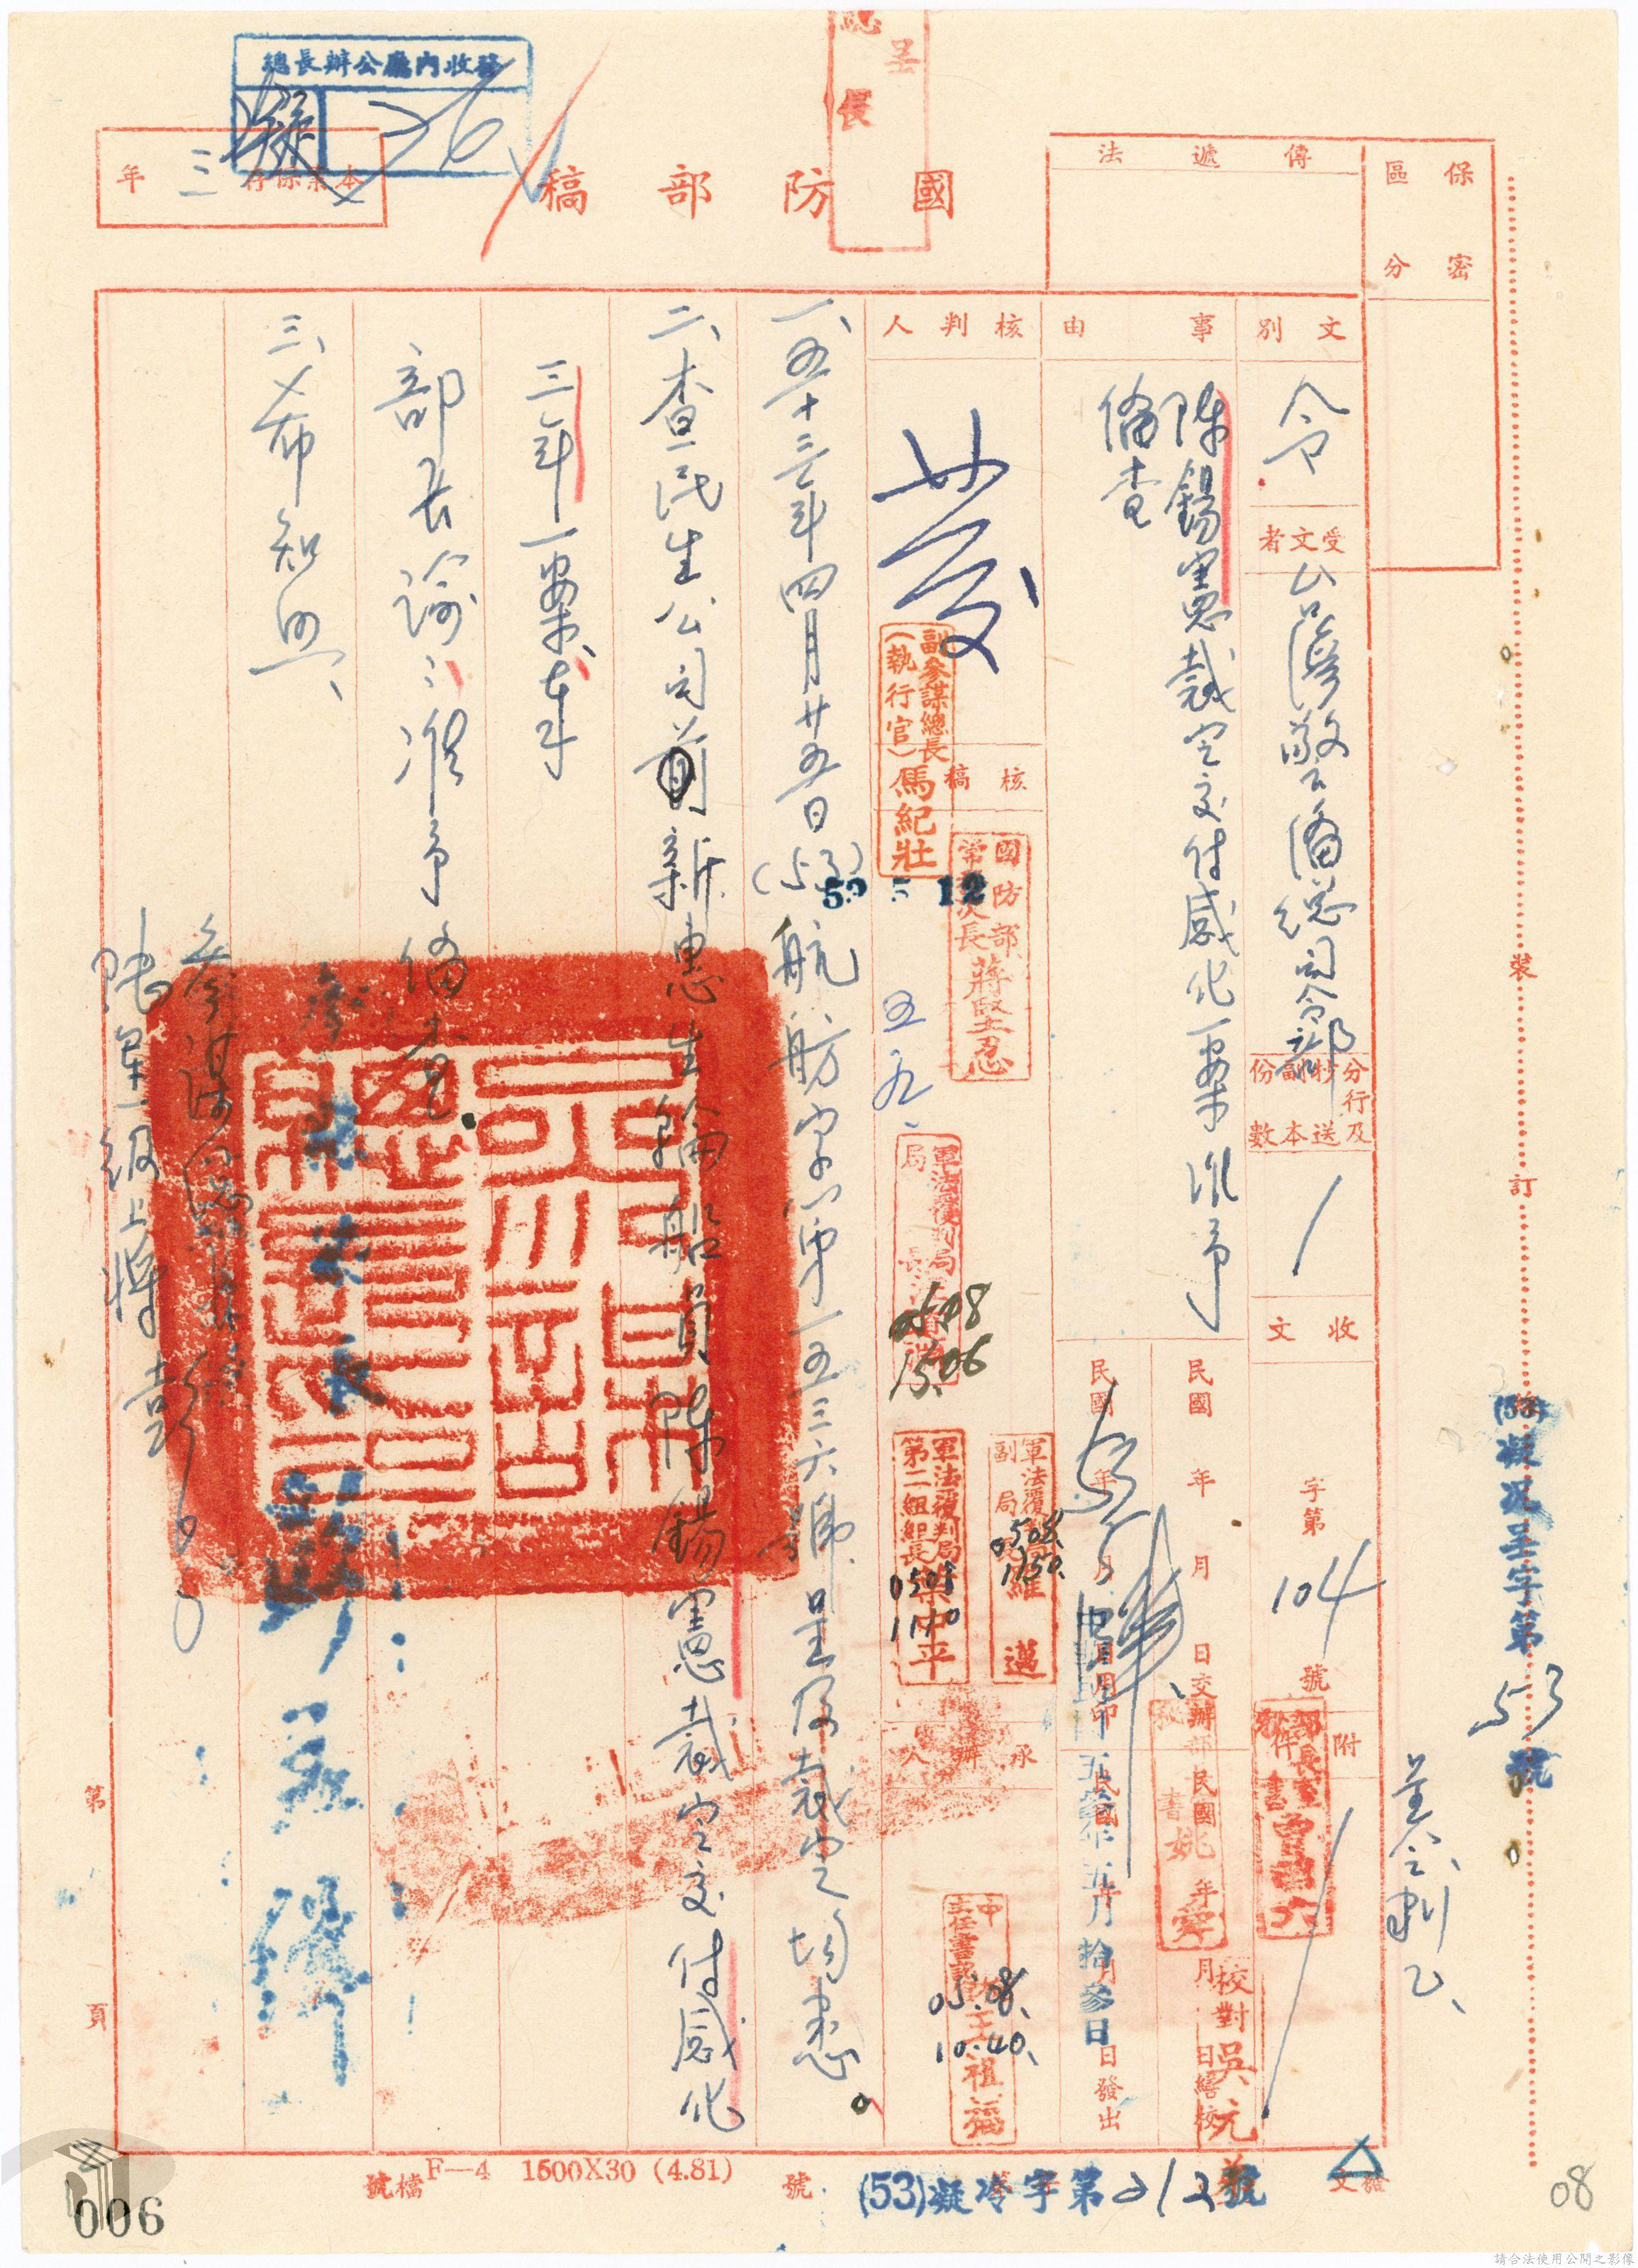 總長辦公廳內收發
26
呈
總長
國防部稿
本案保存三年
保密
區分
傳遞法
文別
令
受文者
台灣警備總司令部
分行及
抄送
副本
份數
收文
字第104號
附件
事由
陳錫憲裁定交付感化一案准予
備查
民國 年 月 日交辦
民國 年 月 日繕校
校對吳元
中華民國五拾參年五月拾參日
日發出
核判人
發
副參謀總長
(執行官)馬紀壯
核稿
國防部
常務次長蔣堅忍
53 5 12
五九、
軍法覆判局
局長
05.08
15.06
軍法覆判局
副局長羅邁
05.08.
1150.
軍法覆判局
第二組組長梁中平
0508
1110
承辦人
王祖福
05.08.
10.40.
一、五十三年四月廿五日(53)航舫字第一五三六號呈及裁定均悉。
二、查民生公司前新惠生輪船員陳錫憲裁定交付感化
三年一案、奉
部長諭:准予備查。
三、希知照、
參謀總長
陸軍一級上將彭
參謀總長彭孟緝
裝
訂
(53)凝況呈字第53號
(53)凝冷字第212號
發文
檔號
號
F—4 1500X30 (4.81)
第 頁
006
08
請合法使用公開之影像